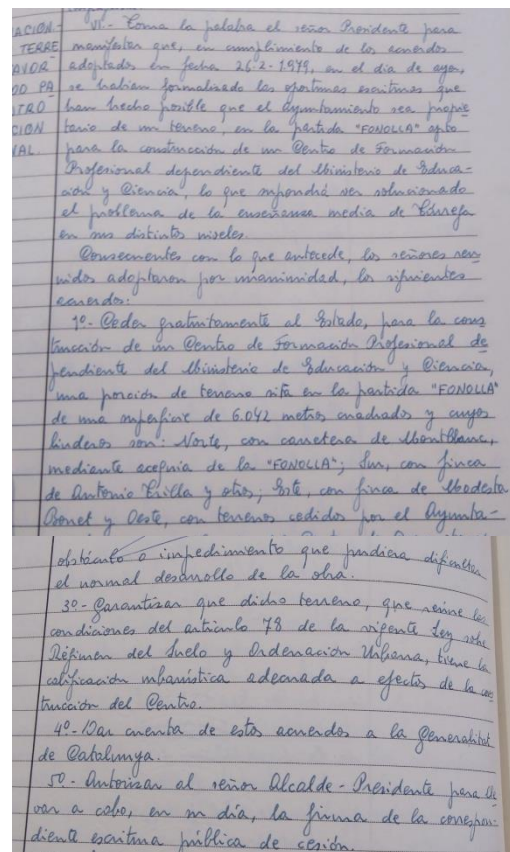 ACION-
TERRE
AVOR
OO PA
TRO
CION
NAL.
VI.- Toma la palabra el señor Presidente para
manifestar que, en cumplimiento de los acuerdos
adoptados en fecha 26-2-1979, en el día de ayer,
se habían formalizado las oportunas escrituras que
han hecho posible que el ayuntamiento sea propie
tario de un terreno, en la partida "FONOLLA" apto
para la construcción de un Centro de Formación
Profesional dependiente del Ministerio de Educa-
ción y Ciencia, lo que supondrá ver solucionado
el problema de la enseñanza media de
en sus distintos niveles.
Consecuentes con lo que antecede, los señores reu
nidos adoptaron por unanimidad, los siguientes
acuerdos:
1º- Ceder gratuitamente al Estado, para la cons
trucción de un Centro de Formación Profesional de
pendiente del Ministerio de Educación y Ciencia,
una porción de terreno sita en la partida "FONOLLA"
de una superficie de 6.042 metros cuadrados y cuyos
linderos son: Norte, con carretera de Montblanc,
mediante acequia de la "FONOLLA"; Sur, con finca
de Antonio Trilla y otros; Este, con finca de Modesta
Bonet y Oeste, con terrenos cedidos por el Ayunta-
obstáculo o impedimiento que pudiera dificultar
el normal desarrollo de la obra.
3º- Garantizar que dicho terreno, que reúne las
condiciones del artículo 78 de la vigente Ley sobre
Régimen del Suelo y Ordenación Urbana, tiene la
calificación urbanística adecuada a efectos de la cons
trucción del Centro.
4º- Dar cuenta de estos acuerdos a la Generalitat
de Catalunya.
5º- Autorizar al señor Alcalde-Presidente para lle
var a cabo, en su día, la firma de la correspon-
diente escritura pública de cesión.